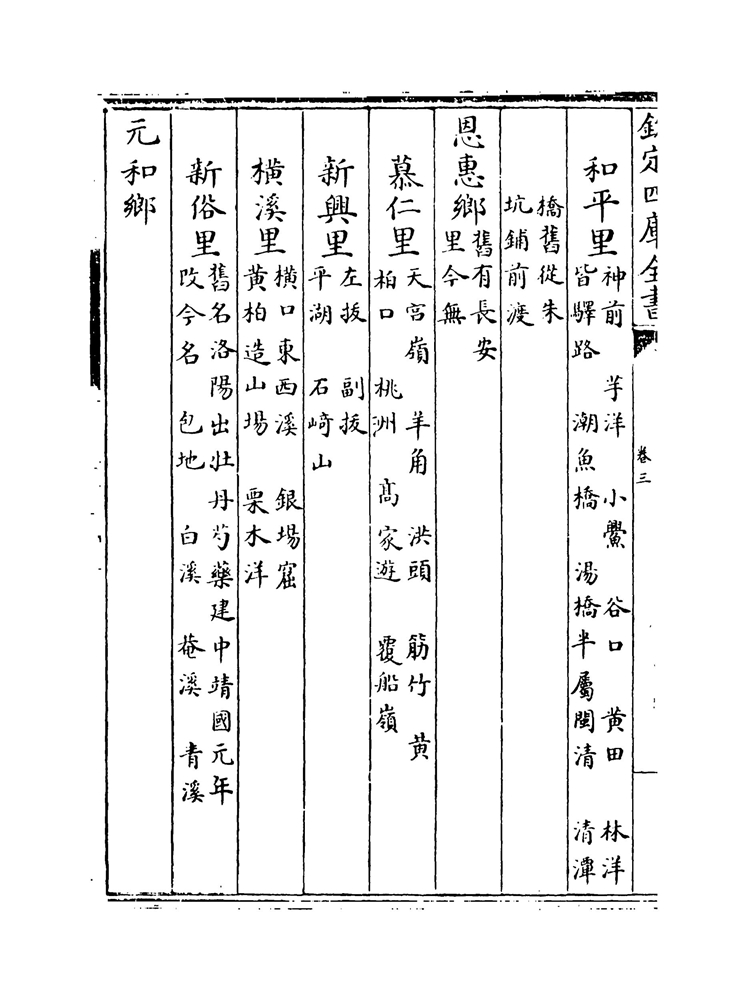 欽定四庫全書
卷三
和平里
神前　芋洋　小　谷口　黄田　林洋
皆驛路　潮魚橋　湯橋半屬閩清　清潭
橋舊從朱
坑鋪前渡
恩惠鄉
舊有長安
里今無
慕仁里
天宫嶺　羊角　洪頭　筋竹　黄
柏口　桃洲　髙家遊　覆船嶺
新興里
左拔　副拔
平湖　石﨑山
橫溪里
橫口東西溪　銀場窟
黄柏造山場　栗木洋
新俗里
舊名洛陽出牡丹芍藥建中靖國元年
改今名　包地　白溪　菴溪　青溪
元和鄉